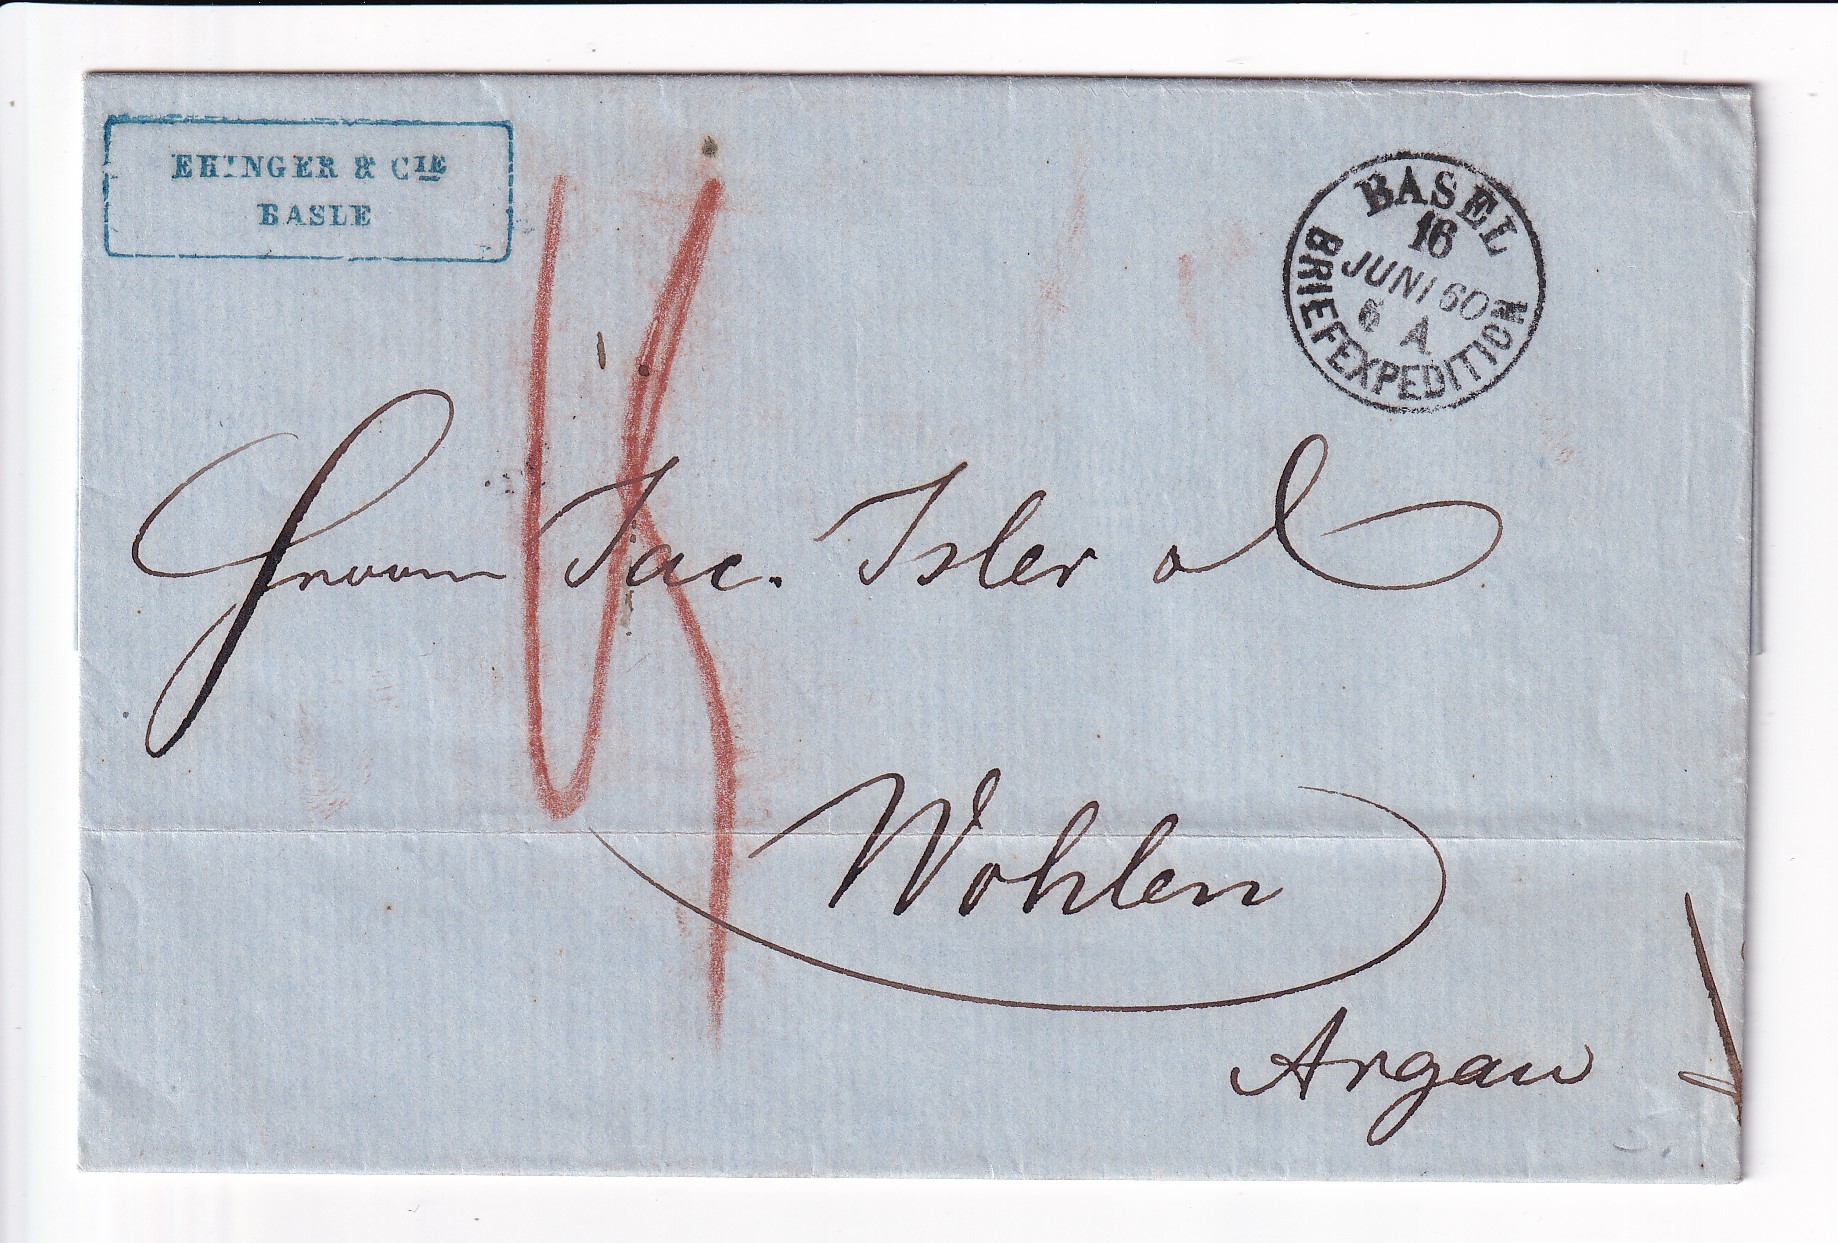 EHINGER & CIE
BASLE
BASEL
16
JUNI 60
6 A
BRIEFEXPEDITION
Jac. Isler
Wohlen
Argau